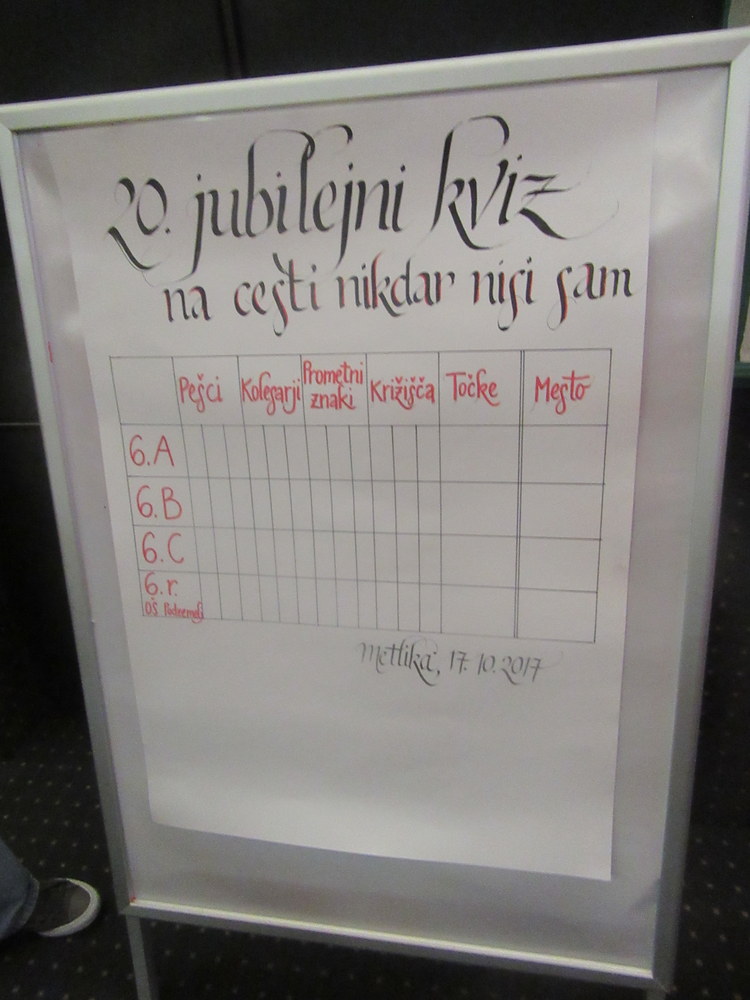 20. jubilejni kviz
na cesti nikdar nisi sam
Pešci Kolesarji Prometni znaki Križišča Točke Mesto
6.A
6.B
6.C
6.r.
OŠ Podzemelj
Metlika, 17.10.2017